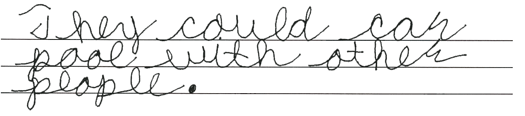 They could car
pool with other
people.